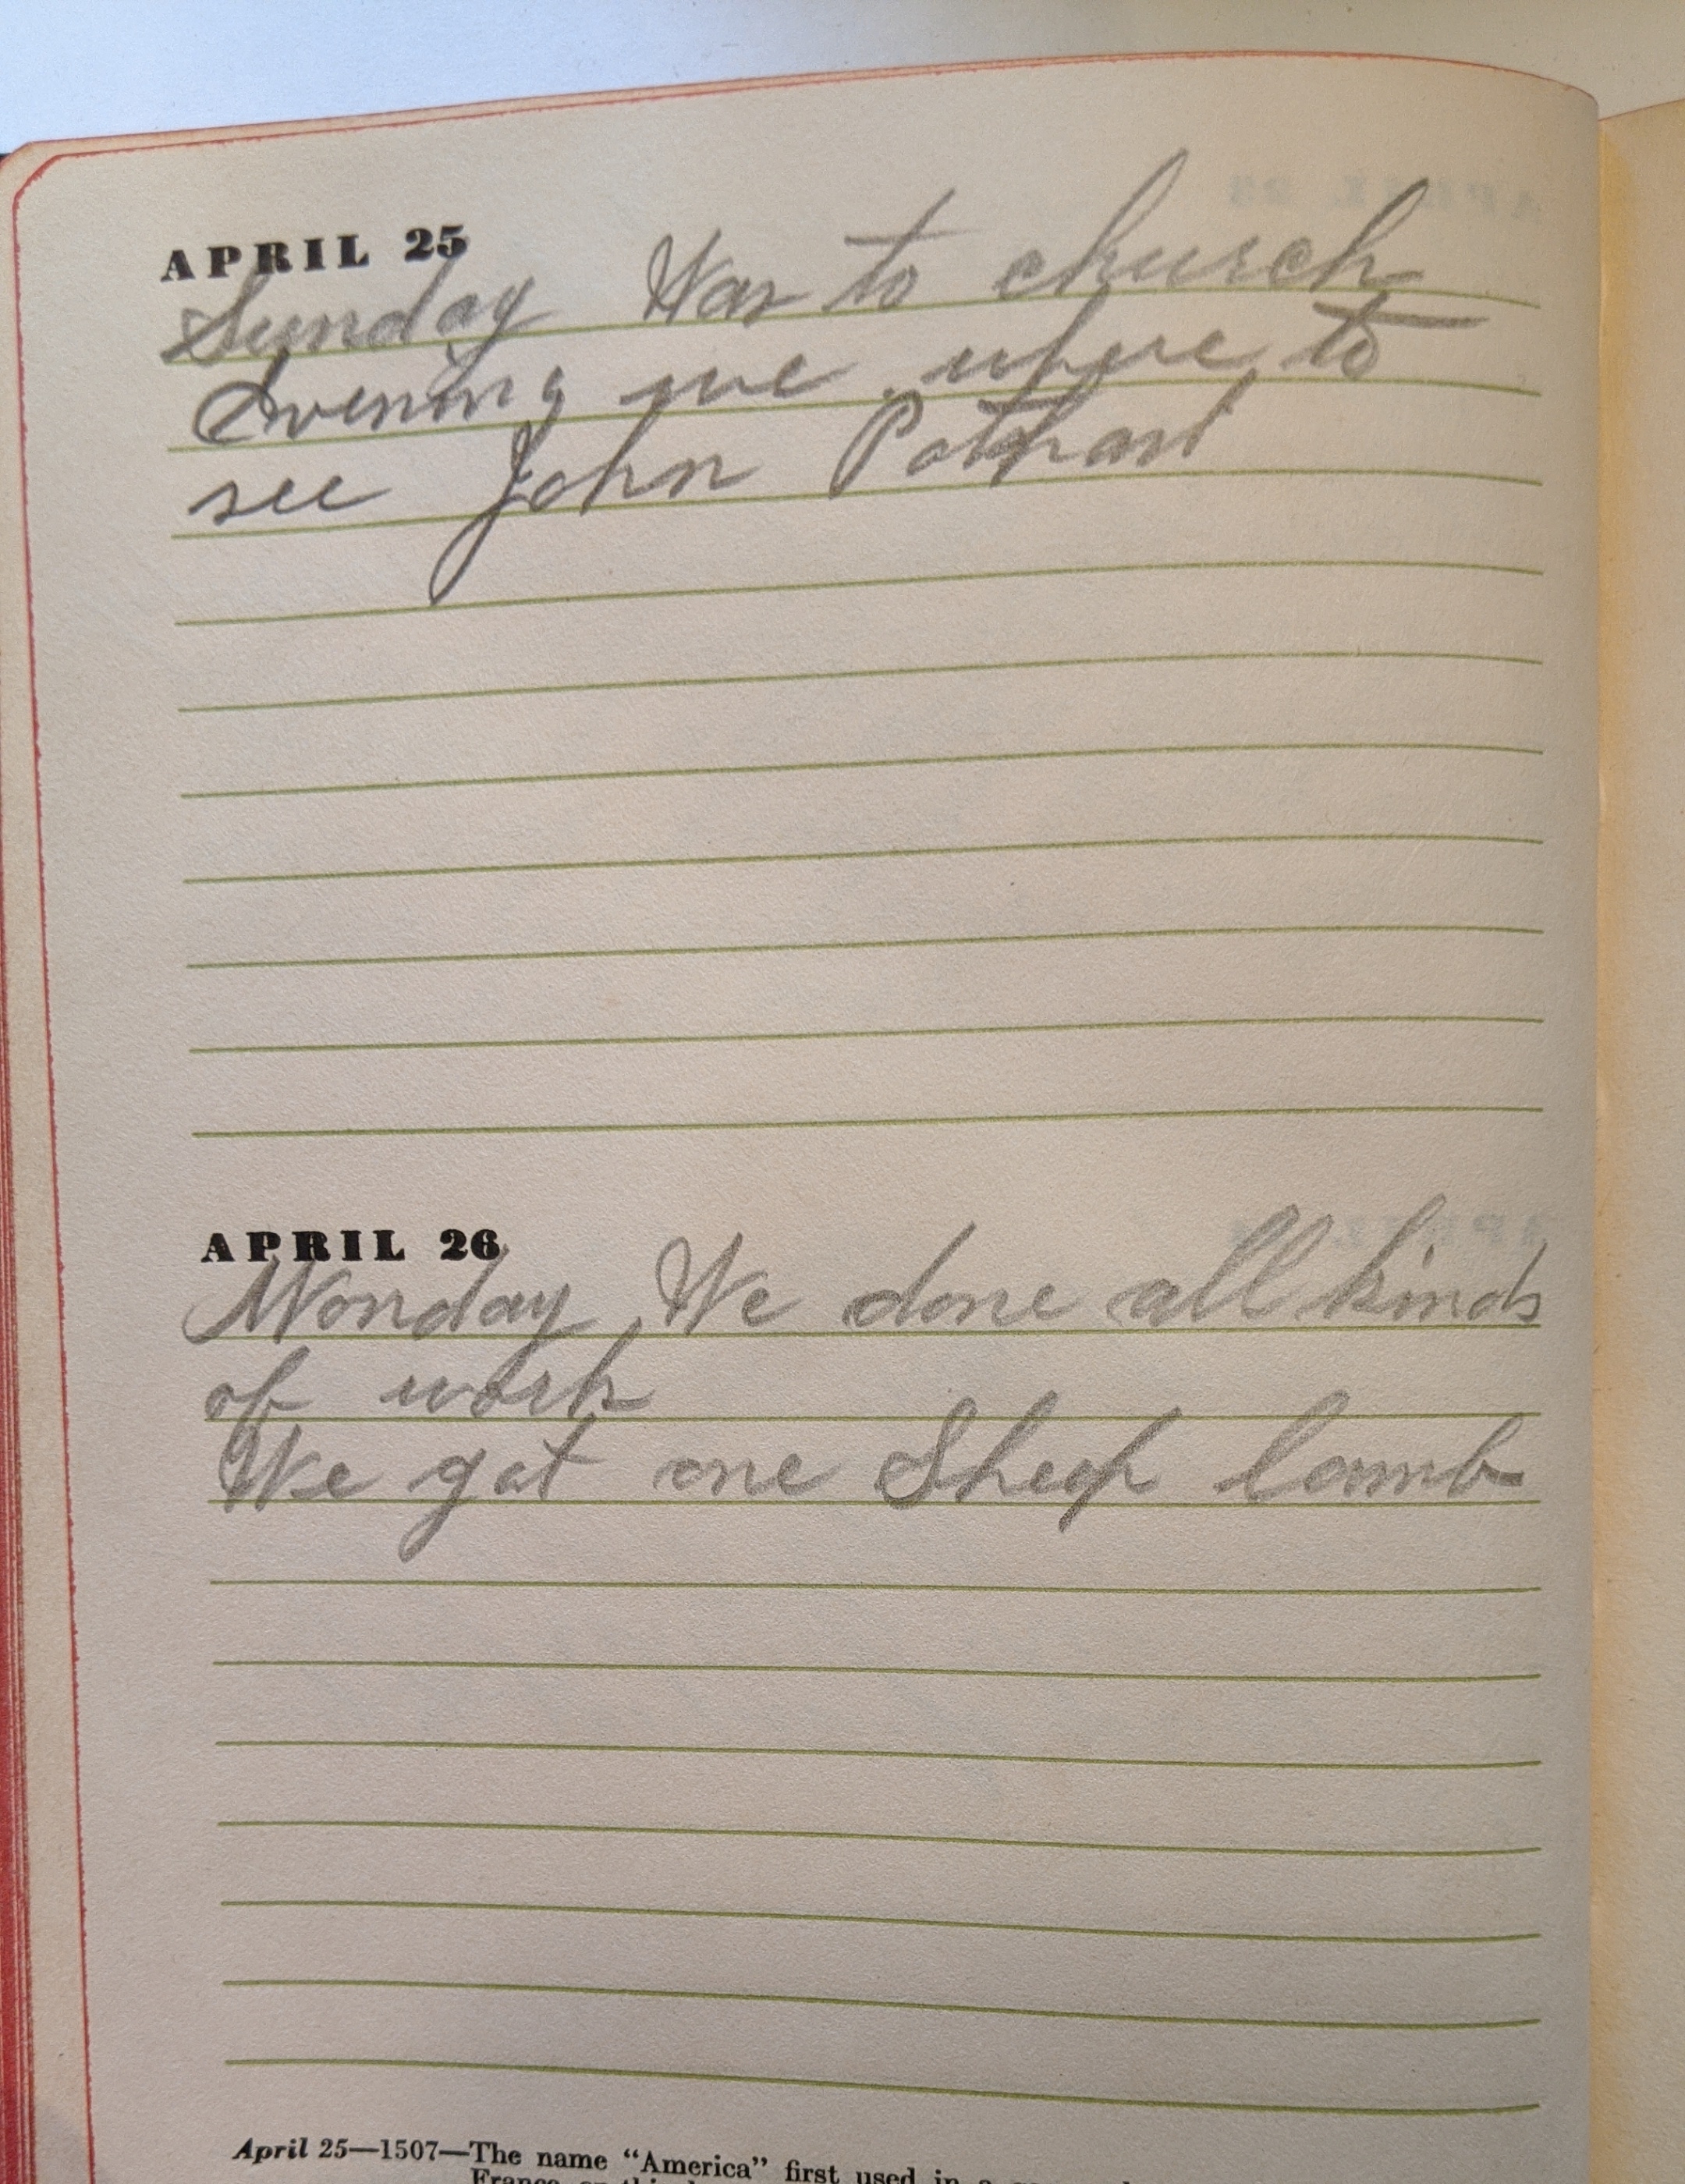 APRIL 25
Sunday Was to church
Evening we where to
see John Pothast
APRIL 26
Monday We done all kinds
of work
We got one Sheep lamb
April 25—1507—The name “America” first used in a
France on this